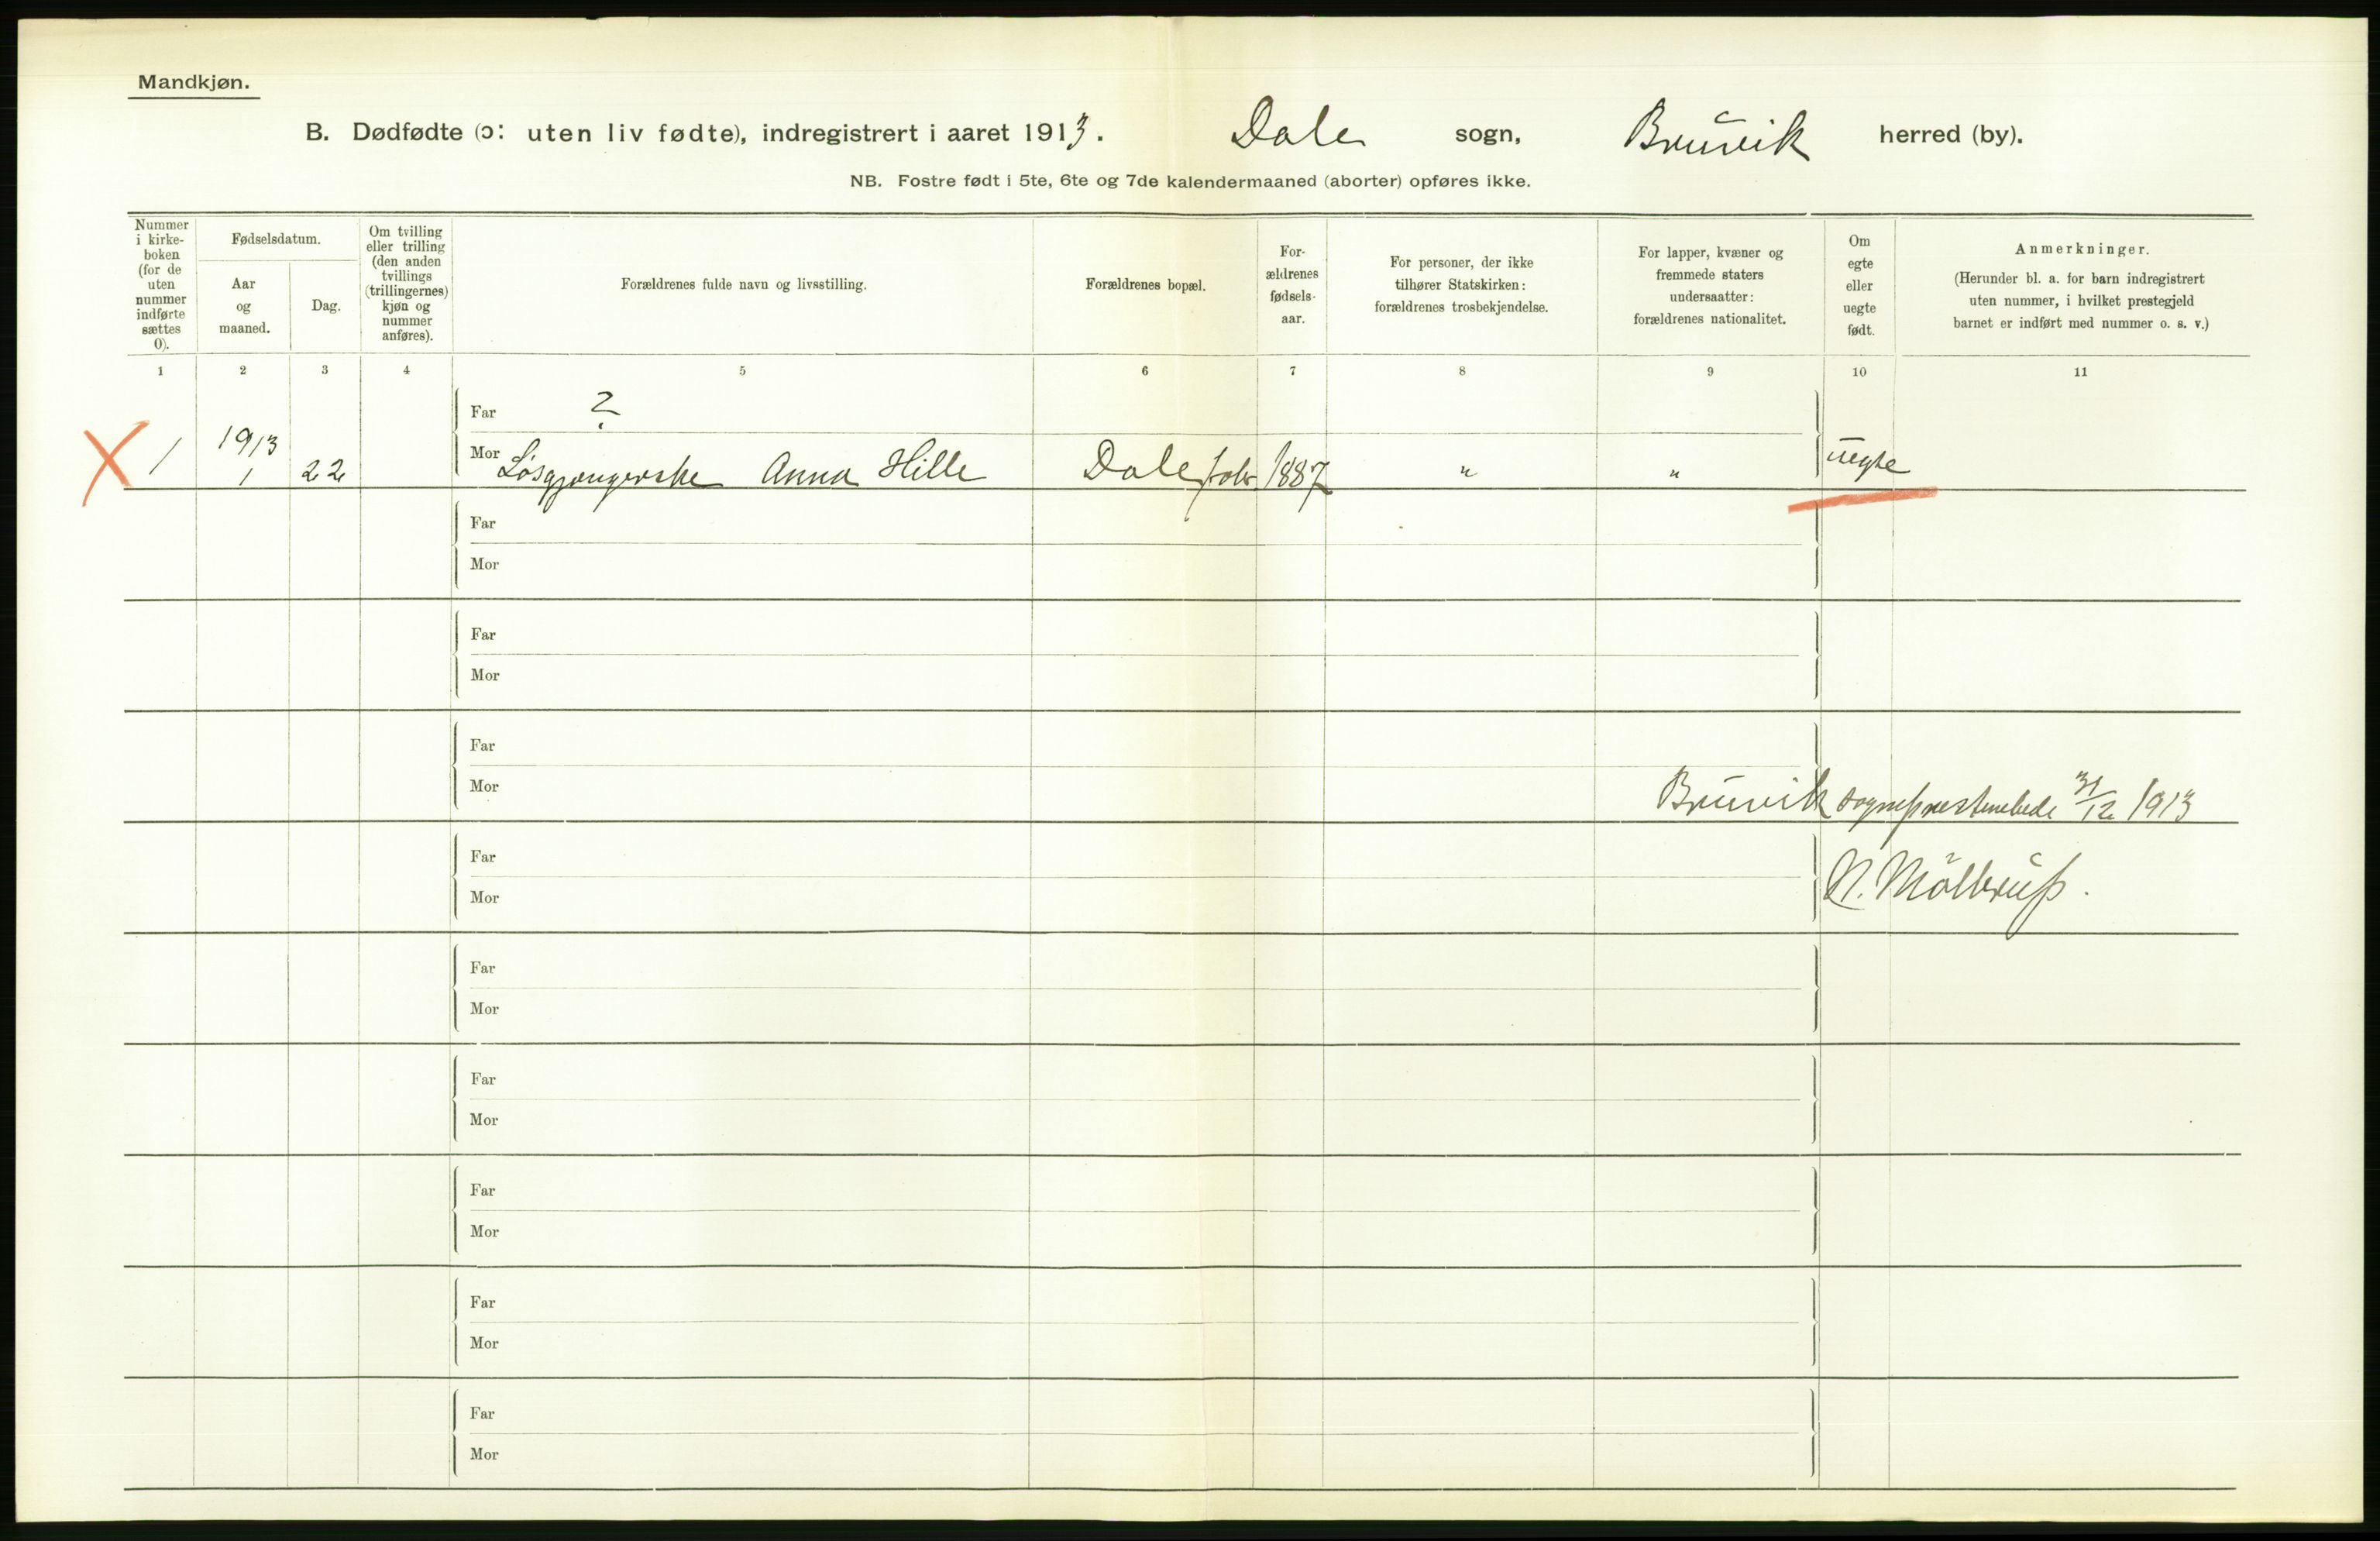 Mandkjøn.
B. Dødfødte (ɔ: uten liv fødte), indregistrert i aaret 1913. Dale sogn, Bruvik herred (by).
NB. Fostre født i 5te, 6te og 7de kalendermaaned (aborter) opføres ikke.
Nummer i kirke-boken (for de uten nummer indførte sættes 0).
Fødselsdatum.
Aar og maaned.
Dag.
Om tvilling eller trilling (den anden tvillings (trillingernes) kjøn og nummer anføres).
Forældrenes fulde navn og livsstilling.
Forældrenes bopæl.
For-ældrenes fødsels-aar.
For personer, der ikke tilhører Statskirken: forældrenes trosbekjendelse.
For lapper, kvæner og fremmede staters undersaatter: forældrenes nationalitet.
Om egte eller uegte født.
Anmerkninger.
(Herunder bl. a. for barn indregistrert uten nummer, i hvilket prestegjeld barnet er indført med nummer o. s. v.)
1 2 3 4 5 6 7 8 9 10 11
Far ?
1 1913 1 22 Mor Løsgjængerske Anna Hille Dale fabr. 1887 " " uegte
Far
Mor
Far
Mor
Far
Mor Bruvik sogneprestembede 31/12 1913
Far
Mor N. Möllerup.
Far
Mor
Far
Mor
Far
Mor
Far
Mor
Far
Mor